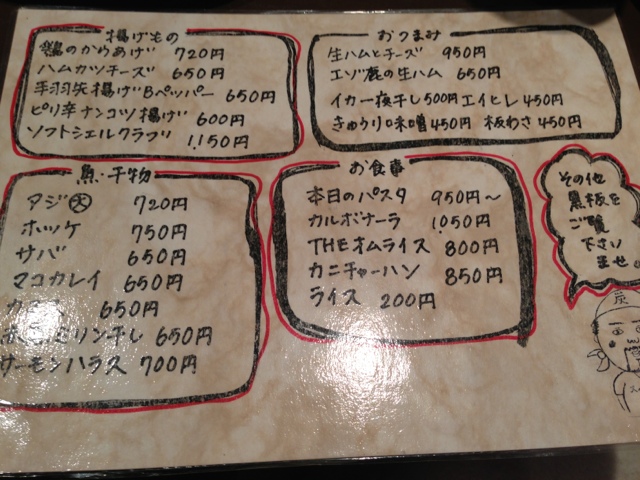 揚げもの
鶏のからあげ 720円
ハムカツチーズ 650円
手羽先揚げBペッパー 650円
ピリ辛ナンコツ揚げ 600円
ソフトシェルクラブ 1,150円
おつまみ
生ハムとチーズ 950円
エゾ鹿の生ハム 650円
イカ一夜干し500円 エイヒレ450円
きゅうり味噌450円 板わさ450円
魚・干物
アジ大 720円
ホッケ 750円
サバ 650円
マコカレイ 650円
650円
ミリン干し 650円
サーモンハラス 700円
お食事
本日のパスタ 950円〜
カルボナーラ 1050円
THEオムライス 800円
カニチャーハン 850円
ライス 200円
その他
黒板を
ご覧
下さい
ませ
炭